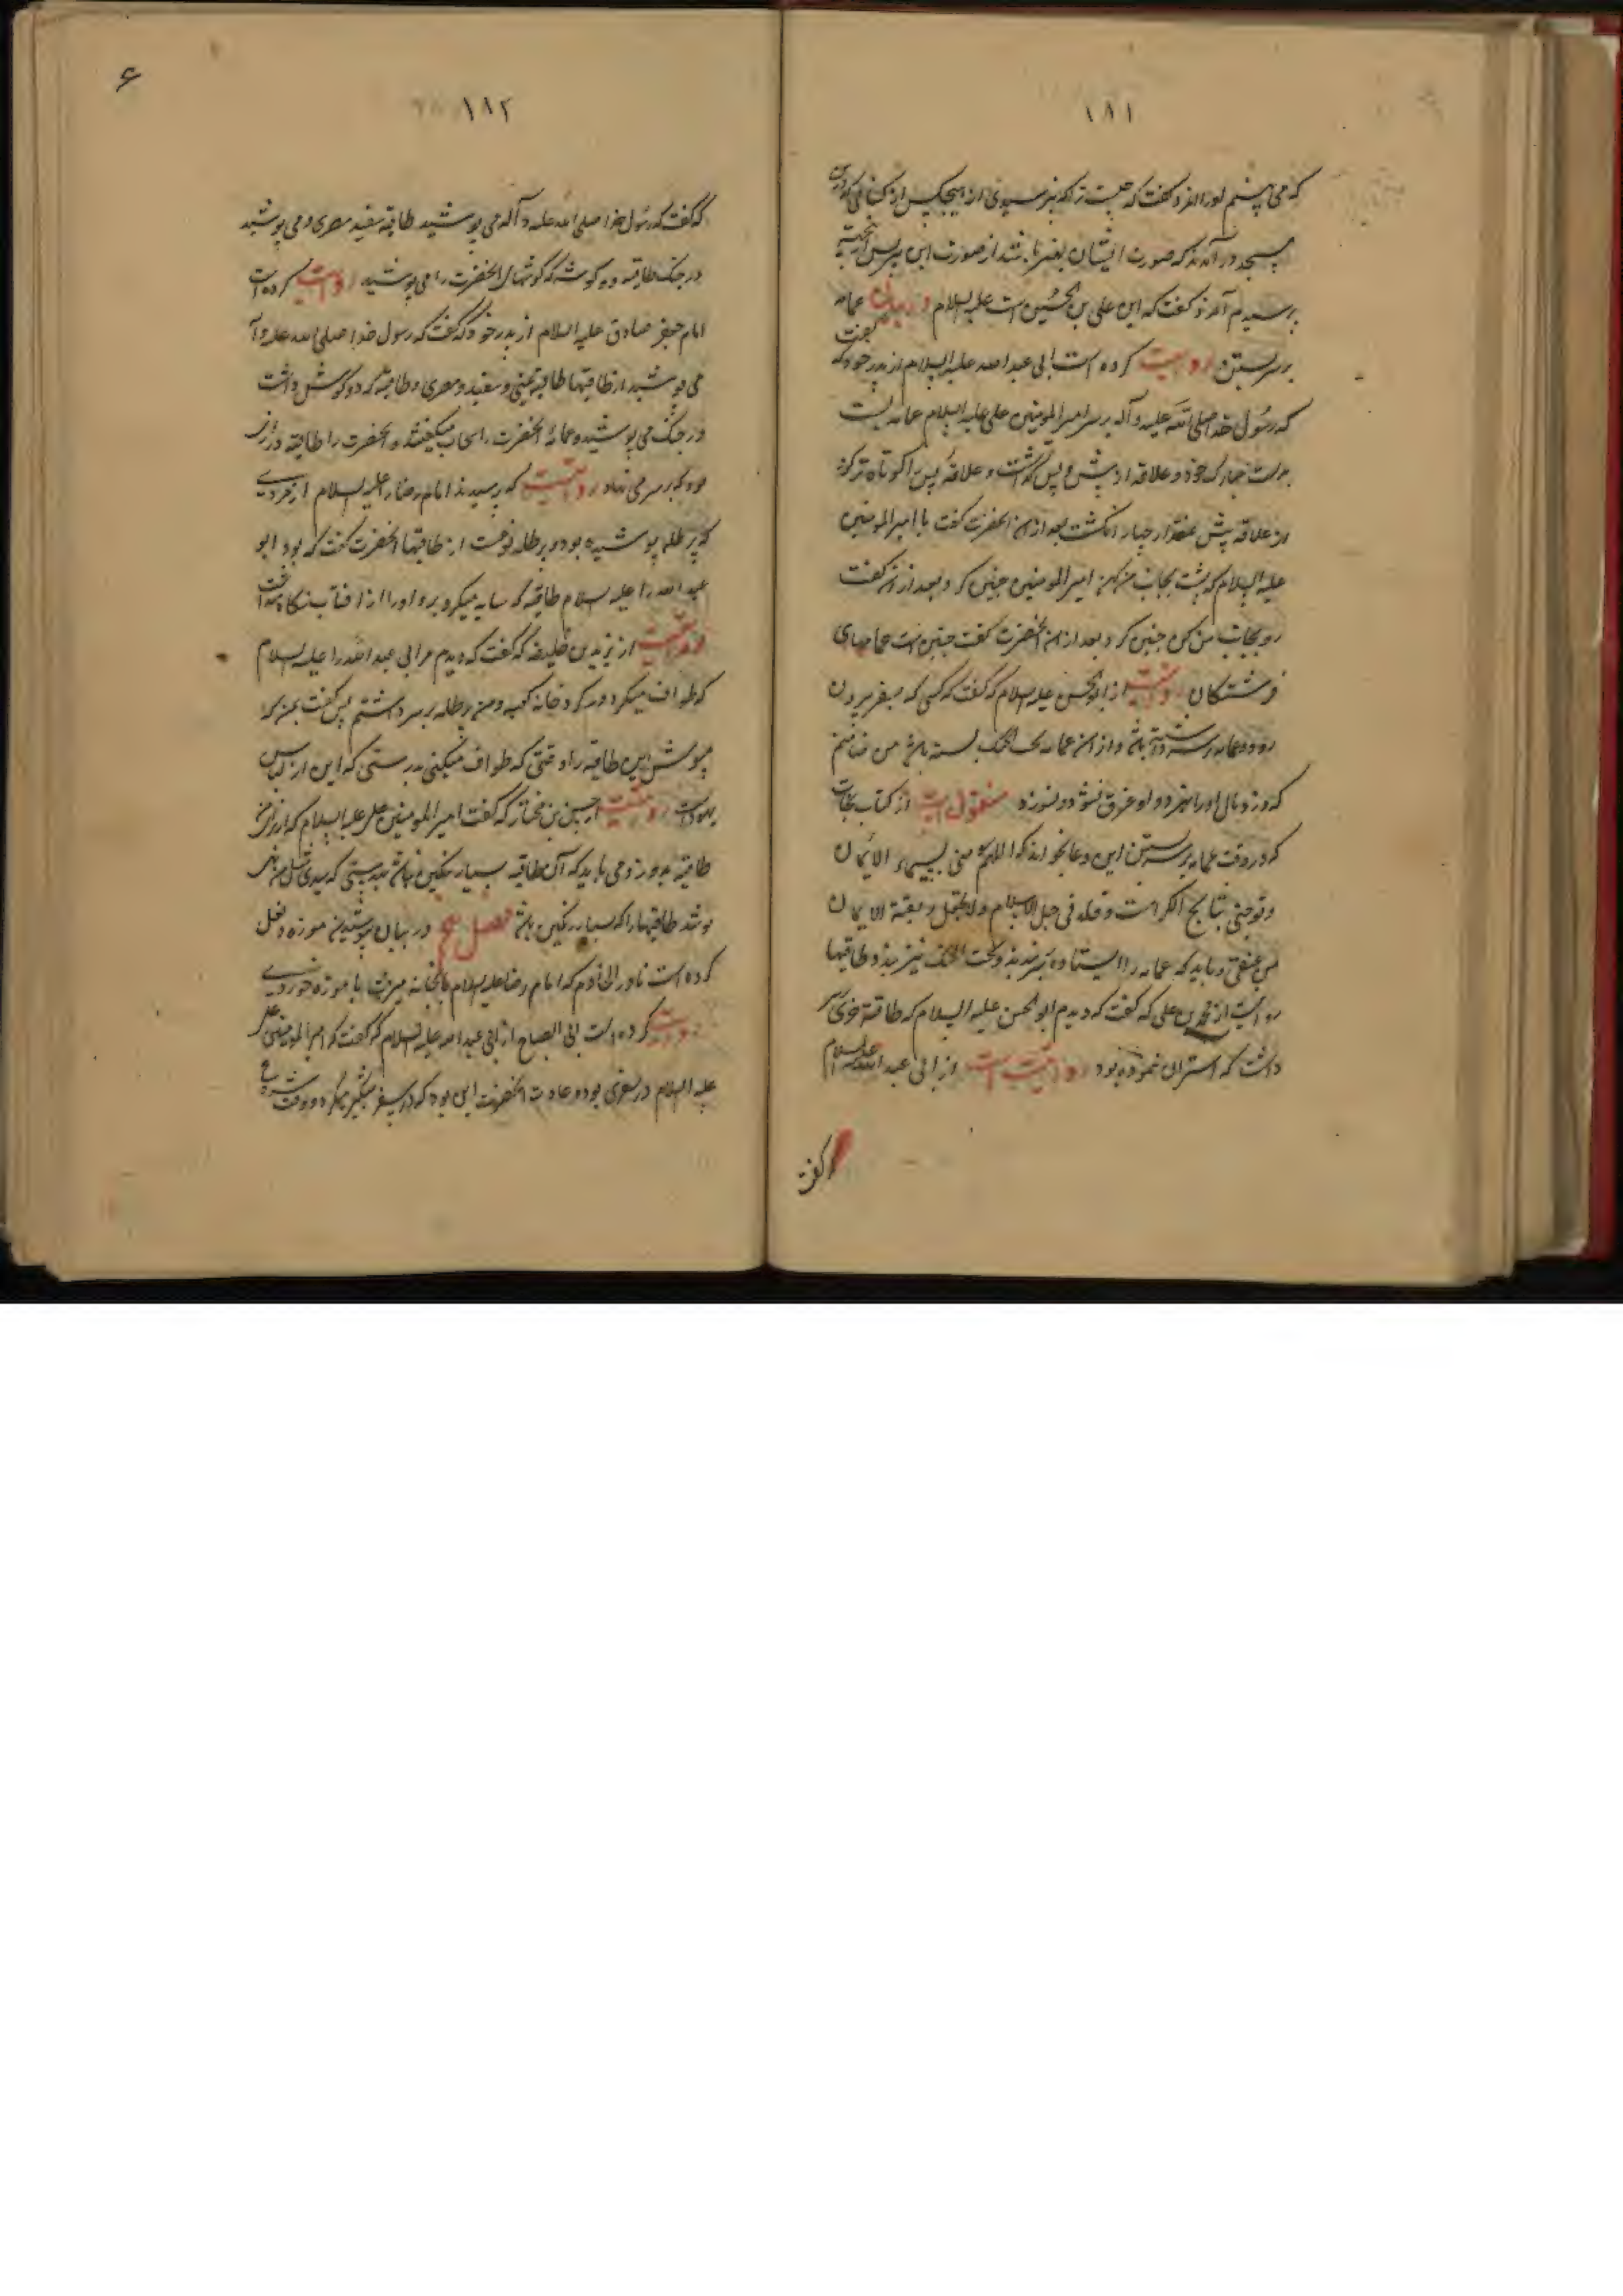 ۱۸۱
که می بینم او را آمرد گفت که چیست ترا که نپرسیدی از هیچکس از کسانی که درین
مسجد در آمدند که صورت ایشان بغیر باشد از صورت این پس از نجبه
پرسیدم آمرد گفت که این علی بن الحسین است علیه السلام در بیان عمامه
بر سر بستن روایت کرده است ابی عبد الله علیه السلام از پدر خود که گفت
که رسول خدا صلی الله علیه و آله بر سر امیر المومنین علی علیه السلام عمامه بست
بدست مبارک خود و علاقه از پیش و پس گذاشت و علاقه پس را کوتاه تر کرد
از علاقه پیش بمقدار چهار انگشت بعد از آن آنحضرت گفت با امیر المومنین
علیه السلام که پشت بجانب من کن امیر المومنین چنین کرد و بعد از آن گفت
رو بجانب من کن چنین کرد و بعد از آن آنحضرت گفت چنین است عمامهای
فرشتگان روایت از ابو الحسن علیه السلام که گفت که کسی که بسفر بیرون
رود و عمامه بر سر داشته باشد و از آن عمامه تحت الحنک بسته باشد من ضامنم
که دزد مال او را نبرد و او غرق نشود و نسوزد منقول است از کتاب نجات
که در وقت عمامه بر سر بستن این دعا بخواند که اللهم سمنی بسیماء الایمان
و توجنی بتاج الکرامت و قلدنی حبل الاسلام ولا تخلع ربقة الایمان
من عنقی و باید که عمامه را ایستاده بر بندند و تحت الحنک نیز بندند و طاقیها
روایت از محمد بن علی که گفت که دیدم ابو الحسن علیه السلام که طاقیه خزی بر سر
داشت که استر آن سمور بود روایت است از ابی عبد الله علیه السلام
که گفت
۱۸۲
۶
که گفت که رسول خدا صلی الله علیه و آله می پوشید طاقیه سفید مصری و می پوشید
در جنگ طاقیه دو گوشه که گوشهای آنحضرت را می پوشید روایت کرده است
امام جعفر صادق علیه السلام از پدر خود که گفت که رسول خدا صلی الله علیه و آله
می پوشید از طاقیها طاقیه یمنی و سفید و مصری و طاقیه که دو گوش داشت
در جنگ می پوشید و عمامه آنحضرت را سحاب میگفتند و آنحضرت را طاقیه درازی
بود که بر سر می نهاد روایت که پرسیدند امام رضا را علیه السلام از مردی
که برطله پوشیده بود و برطله نوعیست از طاقیها آنحضرت گفت که بود ابو
عبد الله را علیه السلام طاقیه که سایه میکرد بر او و او را از آفتاب نگاه میداشت
روایت از یزید بن خلیفه که گفت که دید مرا ابی عبد الله را علیه السلام
که طواف میکردم گرد خانه کعبه و من برطله بر سر داشتم پس گفت بمن که
مپوش این طاقیه را وقتی که طواف میکنی بدرستی که این از لباس
یهود است روایت از حسین بن مختار که گفت امیر المومنین علی علیه السلام که از برای من
طاقیه بدوز و می باید که آن طاقیه بسیار رنگین نباشد بدرستی که سیدی مثل من نمی
پوشد طاقیها را که بسیار رنگین باشد فصل پنجم در بیان پوشیدن موزه و نعل
کرده است نادر الخادم که امام رضا علیه السلام بحمامخانه میرفت با موزه خوردی
روایت کرده است ابی الصباح از ابی عبد الله علیه السلام که گفت که امیر المومنین علی
علیه السلام در سفری بود و عادت آنحضرت این بود که در سفر شبگیر میکرد و وقت شروع